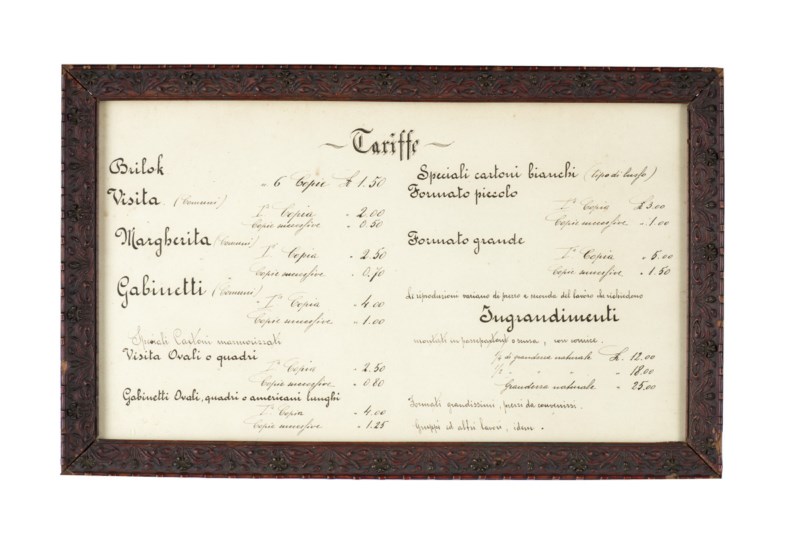 Tariffe
Brilok
" 6 Copie £ 1.50
Visita (Comuni)
1ª Copia " 2.00
Copie successive " 0.50
Margherita (Comuni)
1ª Copia " 2.50
Copie successive " 0.70
Gabinetti (Comuni)
1ª Copia " 4.00
Copie successive " 1.00
Speciali Cartoni marmorizzati
Visita Ovali o quadri
1ª Copia " 2.50
Copie successive " 0.80
Gabinetti Ovali, quadri o americani lunghi
1ª Copia " 4.00
Copie successive " 1.25
Speciali cartoni bianchi (tipo di lusso)
Formato piccolo
1ª Copia £ 3.00
Copie successive " 1.00
Formato grande
1ª Copia " 5.00
Copie successive " 1.50
Le riproduzioni variano di prezzo a seconda del lavoro che richiedono
Ingrandimenti
montati in passepartout, con cornice.
di grandezza naturale £. 12.00
" " " 18.00
Grandezza naturale " 25.00
Formati grandissimi, prezzi da convenirsi.
Gruppi ed altri lavori, idem.